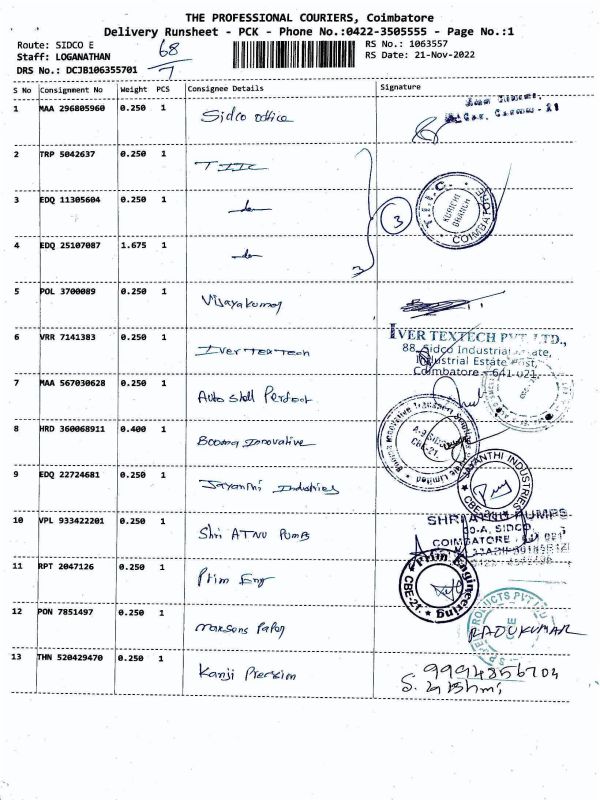 THE PROFESSIONAL COURIERS, Coimbatore
Delivery Runsheet - PCK - Phone No.:0422-3505555 - Page No.:1
Route: SIDCO E 68 RS No.: 1063557
Staff: LOGANATHAN 7 RS Date: 21-Nov-2022
DRS No.: DCJB106355701
S No Consignment No Weight PCS Consignee Details Signature
1 MAA 296805960 0.250 1 Sidco office
2 TRP 5042637 0.250 1 TIIC
3 EDQ 11305604 0.250 1 do
3
T.I.I.C. KURICHI BRANCH COIMBATORE
4 EDQ 25107087 1.675 1 do
3
5 POL 3700089 0.250 1 Vijayakumar
6 VRR 7141383 0.250 1 Iver Textech
IVER TEXTECH PVT. LTD.,
88, Sidco Industrial Estate,
Industrial Estate Post,
Coimbatore - 641 021.
7 MAA 567030628 0.250 1 Auto shell Perfect
8 HRD 360068911 0.400 1 Booma Innovative
A-9 SIDCO
CBE-21.
9 EDQ 22724681 0.250 1 Jayanthi Industries
JAYANTHI INDUSTRIES CBE-21
10 VPL 933422201 0.250 1 Shri ATNU Pumps
SHRI PUMPS
SIDCO
COIMBATORE - 641 021
11 RPT 2047126 0.250 1 Prim Eng
Prim Engineering CBE-21.
12 PON 7851497 0.250 1 marsons Paper
PRODUCTS PVT
RAJUKUMAR
13 THN 520429470 0.250 1 Kanji Precision
9994856704
S.